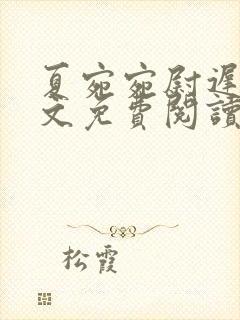 夏宛宛尉遲
文免費閱讀
松霞